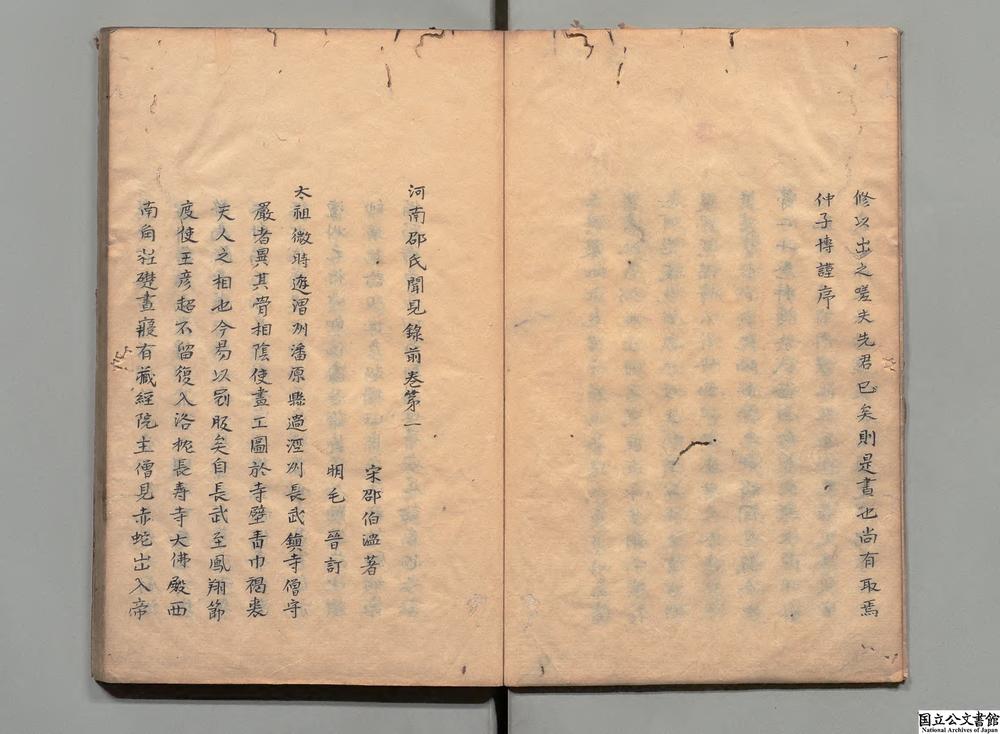 修以出之嗟夫先君已矣則是書也尚有取焉
仲子博謹序
河南邵氏聞見錄前卷第一
宋邵伯溫著
明毛晉訂
太祖微時遊渭州潘原縣過涇州長武鎮寺僧守
嚴者異其骨相陰使畫工圖於寺壁青巾褐裘
天人之相也今易以冠服矣自長武至鳳翔節
度使王彥超不留復入洛枕長壽寺大佛殿西
南角柱礎晝寢有藏經院主僧見赤蛇出入帝
国立公文書館
National Archives of Japan